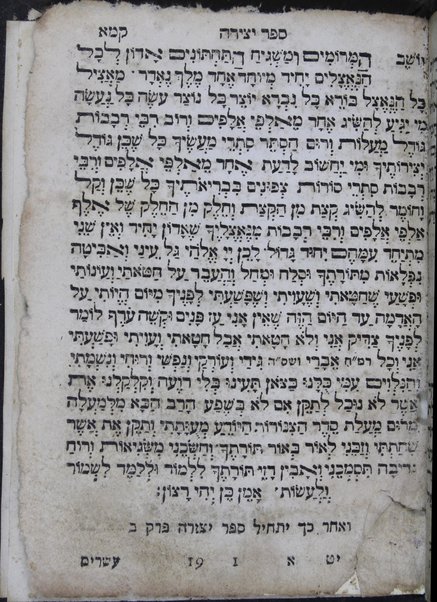 ספר יצירה קמא
יושב המרומים ומשגיח התחתונים אדון לכל
הנאצלים יחיד מיוחד אחד מלך נאדר מאציל
כל הנאצל בורא כל נברא יוצר כל נוצר עשה כל נעשה
מי יגיע להשיג אחר מאלפי אלפים ורוב רבי רבבות
גודל מעלות ורום הסתר סתרי מעשיך כל שכן גודל
יצירותיך ומי יחשוב לדעת אחד מאלפי אלפים ורבי
רבבות סתרי סודות צפונים בבריאותיך כל שכן וקל
וחומר להשיג קצת מן הקצת וחלק מן החלק של אלף
אלפי אלפים ורבי רבבות מנאצליך שאדון יחיד ואין שני
מתיחד עמהם יחוד גדול לכן יי אלהי גל עיני ואביטה
נפלאות מתורתך וסלח ומחל והעבר על חטאתי ועונותי
ופשעי שחטאתי ושעויתי ושפשעתי לפניך מיום היותי על
האדמה עד היום הזה שאין אני עז פנים וקשה ערף לומר
לפניך צדיק אני ולא חטאתי אבל חטאתי עויתי ופשעתי
אני וכל רמ״ח אברי ושס״ה גידי ועורקי ונפשי ורוחי ונשמתי
והנלוים עמי כלנו כצאן תעינו בלי רועה וקלקלנו את
אשר לא נוכל לתקן אם לא בשפע הרב הבא מלמעלה
מרום מעלת סדר הצנורות היודע מעותתי ותקן את אשר
שחתתי וזכני לאור באור תורתך וחשכני משגיאות ורוח
נדיבה תסמכני ואבין רזי תורתך ללמוד וללמד לשמור
ולעשות אמן כן יהי רצון׃
ואחר כך יתחיל ספר יצירה פרק ב
יט א 1 19 עשרים